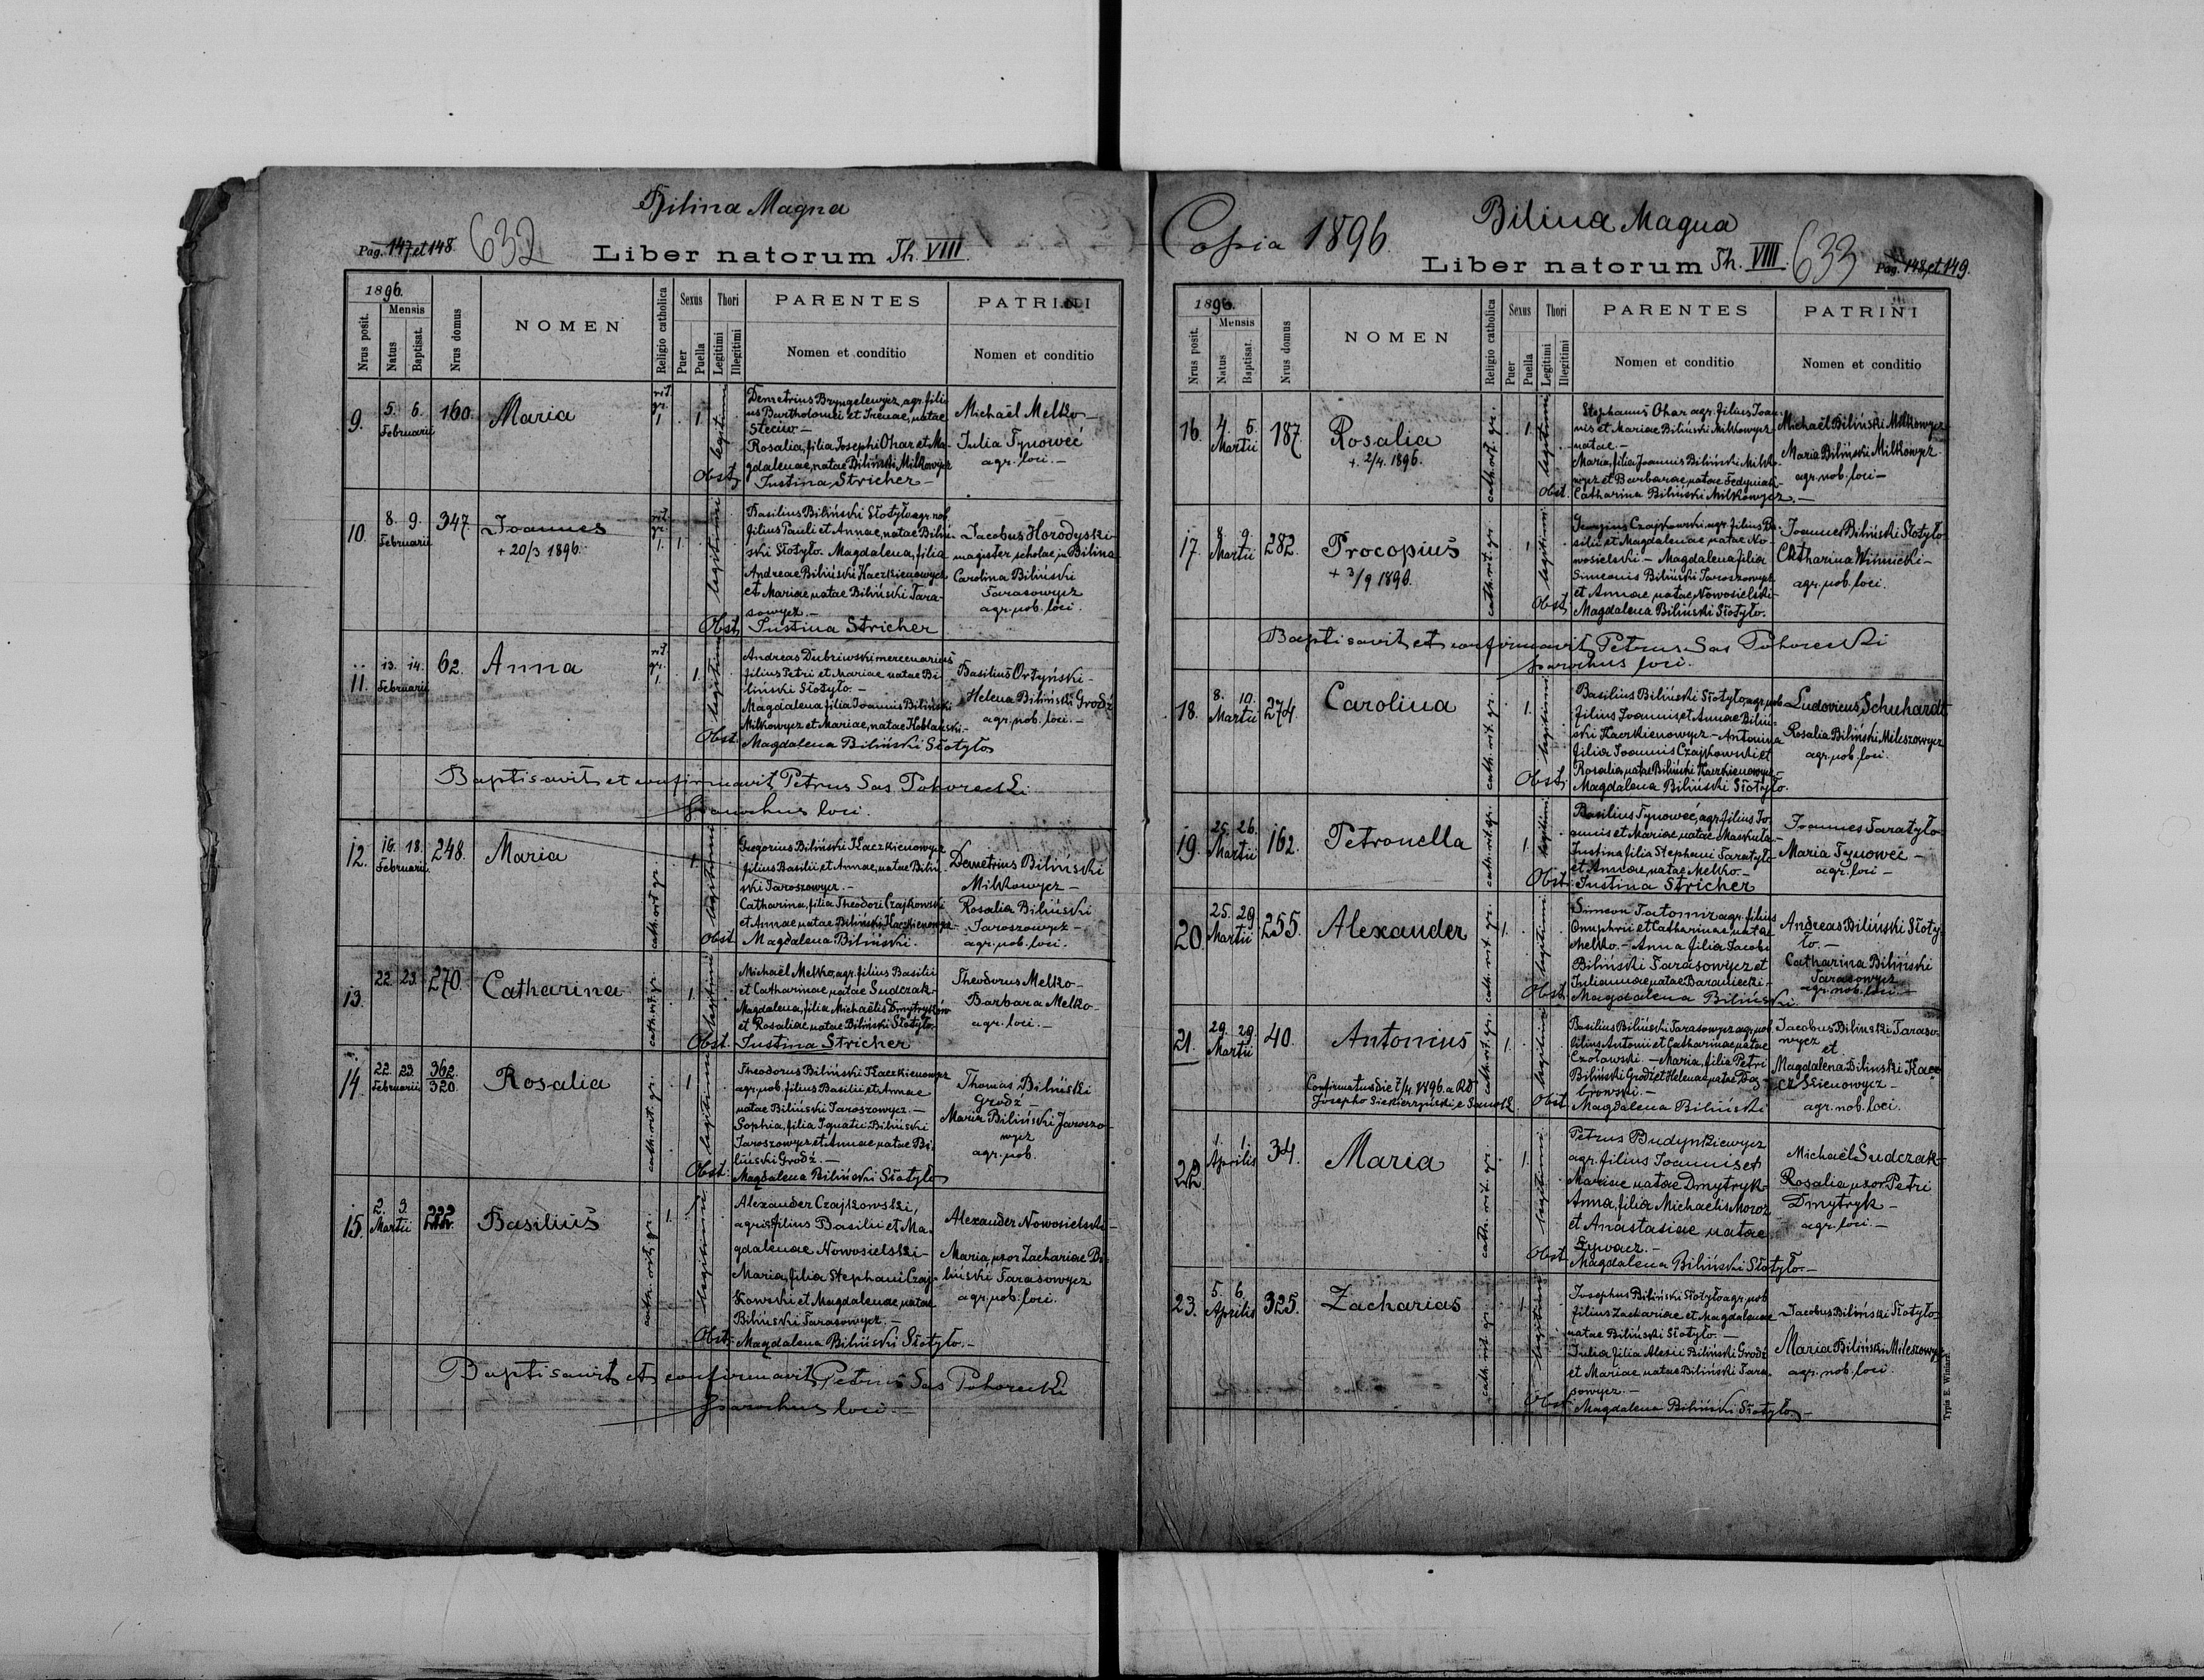 Bilina Magna
Pag. 147 et 148.
632
Liber natorum Th. VIII.
1896.
Nrus posit.
Mensis
Natus
Baptisat.
Nrus domus
NOMEN
Religio catholica
Sexus
Puer
Puella
Thori
Legitimi
Illegitimi
PARENTES
Nomen et conditio
PATRINI
Nomen et conditio
9.
5. 6.
Februarii
160.
Maria
rit.
gr.
1
1.
legitimi
Demetrius Bryngelewycz, agr. fili-
us Bartholomei et Irenae, natae
Steciw.—
Rosalia, filia Josephi Ohar et Ma-
gdalenae, natae Biliński Milkowycz
Obst. Justina Stricher—
Michaël Melko—
Julia Tynoweć
agr. loci.—
10.
8. 9.
Februarii
347.
Joannes
+ 20/3 1896.
rit.
gr.
1. 1.
legitimi
Basilius Biliński Słotyło agr. nob.
filius Pauli et Annae, natae Biliń-
ski Słotyło. Magdalena, filia
Andreae Biliński Kaczkienowycz
et Mariae, natae Biliński Tara-
sowycz.—
Obst. Justina Stricher
Jacobus Horodyski
magister scholae in Bilina
Carolina Biliński
Tarasowycz
agr. nob. loci.
11.
13. 14.
Februarii
62.
Anna
rit.
gr.
1.
1.
legitimi
Andreas Dubriwski mercenarius
filius Petri et Mariae natae Bi-
liński Słotyło.—
Magdalena filia Joannis Biliński
Milkowycz et Mariae, natae Koblański.—
Obst. Magdalena Biliński Słotyło
Basilius Ortyński—
Helena Biliński Grodź
agr. nob. loci.—
Baptisavit et confirmavit Petrus Sas Pohorecki
parochus loci.
12.
16. 18.
Februarii
248.
Maria
cath. rit. gr.
1.
legitimi
Gregorius Biliński Kaczkienowycz
filius Basilii et Annae, natae Biliń-
ski Jaroszowycz.—
Catharina, filia Theodori Czajkowski
et Annae natae Biliński Kaczkienowycz—
Obst. Magdalena Biliński.
Demetrius Biliński
Milkowycz—
Rosalia Biliński
Jaroszowycz—
agr. nob. loci.
13.
22. 23.
270.
Catharina
cath. rit. gr.
1.
legitimi
Michaël Melko, agr. filius Basilii
et Catharinae, natae Sudczak—
Magdalena, filia Michaëlis Dmytryków
et Rosaliae, natae Biliński Słotyło.
Obst. Justina Stricher
Theodorus Melko—
Barbara Melko—
agr. loci.—
14.
22. 23.
Februarii
362.
320.
Rosalia
cath. rit. gr.
1
legitimi
Theodorus Biliński Kaczkienowycz
agr. nob. filius Basilii et Annae
natae Biliński Jaroszowycz.—
Sophia, filia Ignatii Biliński
Jaroszowycz et Annae, natae Bi-
liński Grodź.—
Obst. Magdalena Biliński Słotyło
Thomas Biliński
Grodź—
Maria Biliński Jaroszo-
wycz
agr. nob.
15.
2. 3.
Martii
Basilius
cath. rit. gr.
1.
legitimi
Alexander Czajkowski,
agr. filius Basilii et Ma-
gdalenae Nowosielski—
Maria, filia Stephani Czaj-
kowski et Magdalenae, natae
Biliński Tarasowycz.—
Obst. Magdalena Biliński Słotyło.—
Alexander Nowosielski—
Maria, uxor Zachariae Bi-
liński Tarasowycz
agr. nob. loci.
Baptisavit et confirmavit Petrus Sas Pohorecki
parochus loci.—
Copia 1896.
Bilina Magna
Liber natorum Th. VIII.
633
Pag. 148 et 149.
1896.
Nrus posit.
Mensis
Natus
Baptisat.
Nrus domus
NOMEN
Religio catholica
Sexus
Puer
Puella
Thori
Legitimi
Illegitimi
PARENTES
Nomen et conditio
PATRINI
Nomen et conditio
16.
4. 5.
Martii
187.
Rosalia
+ 2/4. 1896.
cath. rit. gr.
1.
legitimi
Stephanus Ohar agr. filius Joan-
nis et Mariae Biliński Milkowycz
natae.—
Maria, filia Joannis Biliński Milko-
wycz et Barbarae, natae Fedyniak—
Obst. Catharina Biliński Milkowycz.—
Michaël Biliński Milkowycz
Maria Biliński Milkowycz
agr. nob. loci—
17.
8. 9.
Martii
282.
Procopius
+ 3/9 1896.
cath. rit. gr.
1
legitimi
Georgius Czajkowski agr. filius Ba-
silii et Magdalenae natae No-
wosielski— Magdalena filia
Simeonis Biliński Jaroszowycz
et Annae natae Nowosielski—
Obst. Magdalena Biliński Słotyło.
Joannes Biliński Słotyło
Catharina Winnicki—
agr. nob. loci.
Baptisavit et confirmavit Petrus Sas Pohorecki
parochus loci.
18.
8. 10.
Martii
274.
Carolina
cath. rit. gr.
1.
legitimi
Basilius Biliński Słotyło agr. nob.
filius Joannis et Annae Biliń-
ski Kaczkienowycz— Antonina
filia Joannis Czajkowski et
Rosalia, natae Biliński Kaczkienowycz—
Obst. Magdalena Biliński Słotyło.
Ludovicus Schuhardt
Rosalia Biliński Mileszowycz
agr. nob. loci.
19.
25. 26.
Martii
162.
Petronella
cath. rit. gr.
1.
legitimi
Basilius Tynoweć, agr. filius Jo-
annis et Mariae, natae Maskuła—
Justina filia Stephani Taratyło
et Annae, natae Melko.—
Obst. Justina Stricher
Joannes Taratyło
Maria Tynoweć—
agr. loci—
20.
25. 29.
Martii
255.
Alexander
cath. rit. gr.
1.
legitimi
Simeon Tatomir agr. filius
Onuphrii et Catharinae, natae
Melko.— Anna filia Jacobi
Biliński Tarasowycz et
Juliannae natae Baraniecki—
Obst. Magdalena Biliński
Andreas Biliński Słoty-
ło.—
Catharina Biliński
Tarasowycz
agr. nob. loci.—
21.
29. 29.
Martii
40.
Antonius
Confirmatus die 7/4 1896. a RD
Josepho Siekierzyński e Sanok.
cath. rit. gr.
1.
legitimi
Basilius Biliński Tarasowycz agr. nob.
filius Antonii et Catharinae, natae
Czołowski.— Maria, filia Petri
Biliński Grodź et Helenae, natae Dą-
browski.—
Obst. Magdalena Biliński
Jacobus Biliński Taraso-
wycz
et
Magdalena Biliński Kacz-
kienowycz—
agr. nob. loci.
22.
1. 1.
Aprilis
34.
Maria
cath. rit. gr.
1.
legitimi
Petrus Budynkiewycz
agr. filius Joannis et
Mariae natae Dmytryk
Anna, filia Michaelis Moroz
et Anastasiae natae
Sywacz.—
Obst. Magdalena Biliński Słotyło.—
Michaël Sudczak—
Rosalia uxor Petri
Dmytryk—
agr. loci.—
23.
5. 6.
Aprilis
325.
Zacharias
cath. rit. gr.
1.
legitimi
Josephus Biliński Słotyło agr. nob.
filius Zachariae et Magdalenae
natae Biliński Słotyło.—
Julia filia Alexii Biliński Grodź
et Mariae natae Biliński Tara-
sowycz—
Obst. Magdalena Biliński Słotyło—
Jacobus Biliński Słotyło
Maria Biliński Mileszowycz
agr. nob. loci.
Typis E. Winiarz.